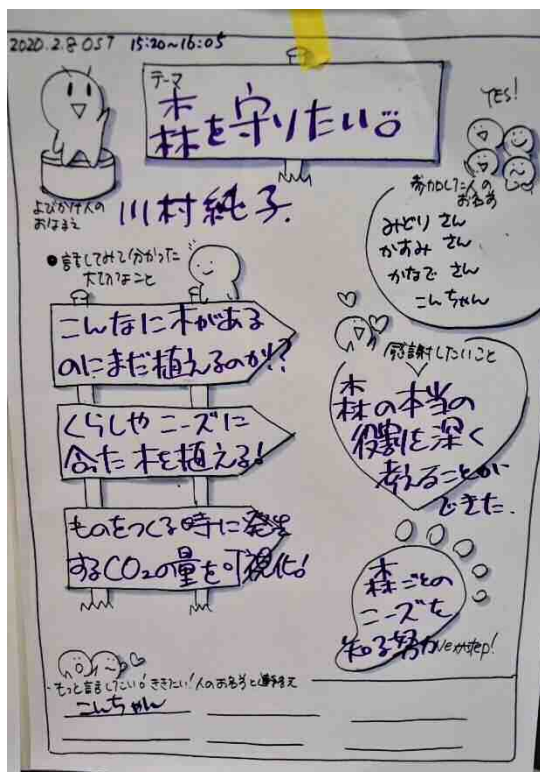 2020.2.8 OST 15:20~16:05
テーマ
森を守りたい。
YES!
よびかけ人の
おなまえ
川村純子.
参加した人の
お名前
みどり さん
かすみ さん
かなで さん
こんちゃん
●話してみて分かった
大切なこと
こんなに木がある
のにまだ植えるのか!?
くらしやニーズに
合った木を植える!
ものをつくる時に発生
するCO2の量を可視化!
感謝したいこと
森の本当の
役割を深く
考えることが
できた.
森ごとの
ニーズを
知る努力
Next step!
もっと話したい!ききたい!人のお名前と連絡先
こんちゃん